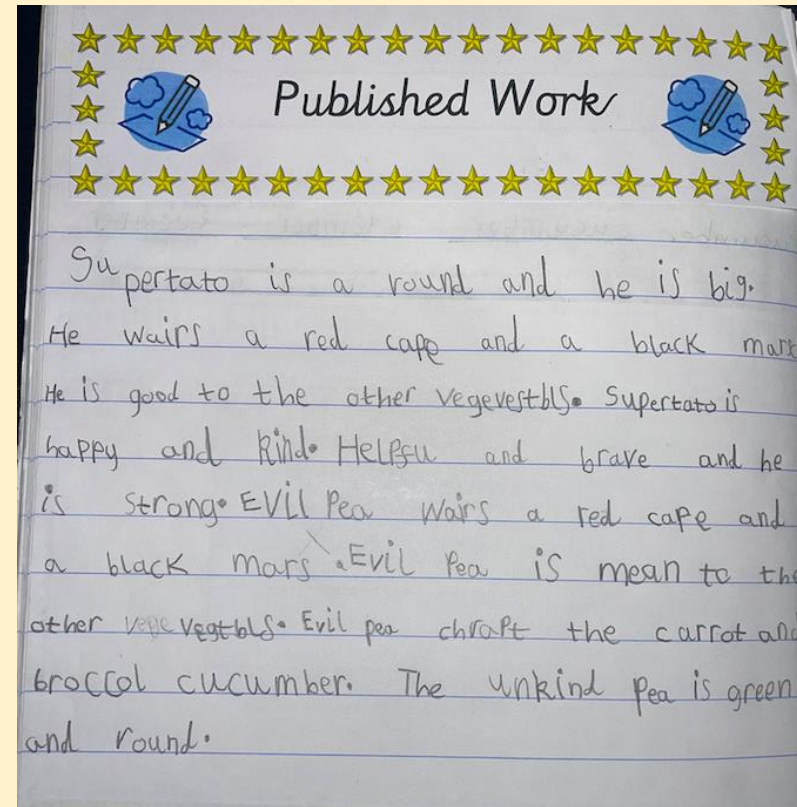 Published Work
Supertato is a round and he is big.
He wairs a red cape and a black mars
He is good to the other vegevestbls. Supertato is
happy and kind. Helpfu and brave and he
is strong. EVil Pea wairs a red cape and
a black mars. Evil Pea is mean to the
other vege vegtbls. Evil pea chrapt the carrot and
broccol cucumber. The unkind pea is green
and round.